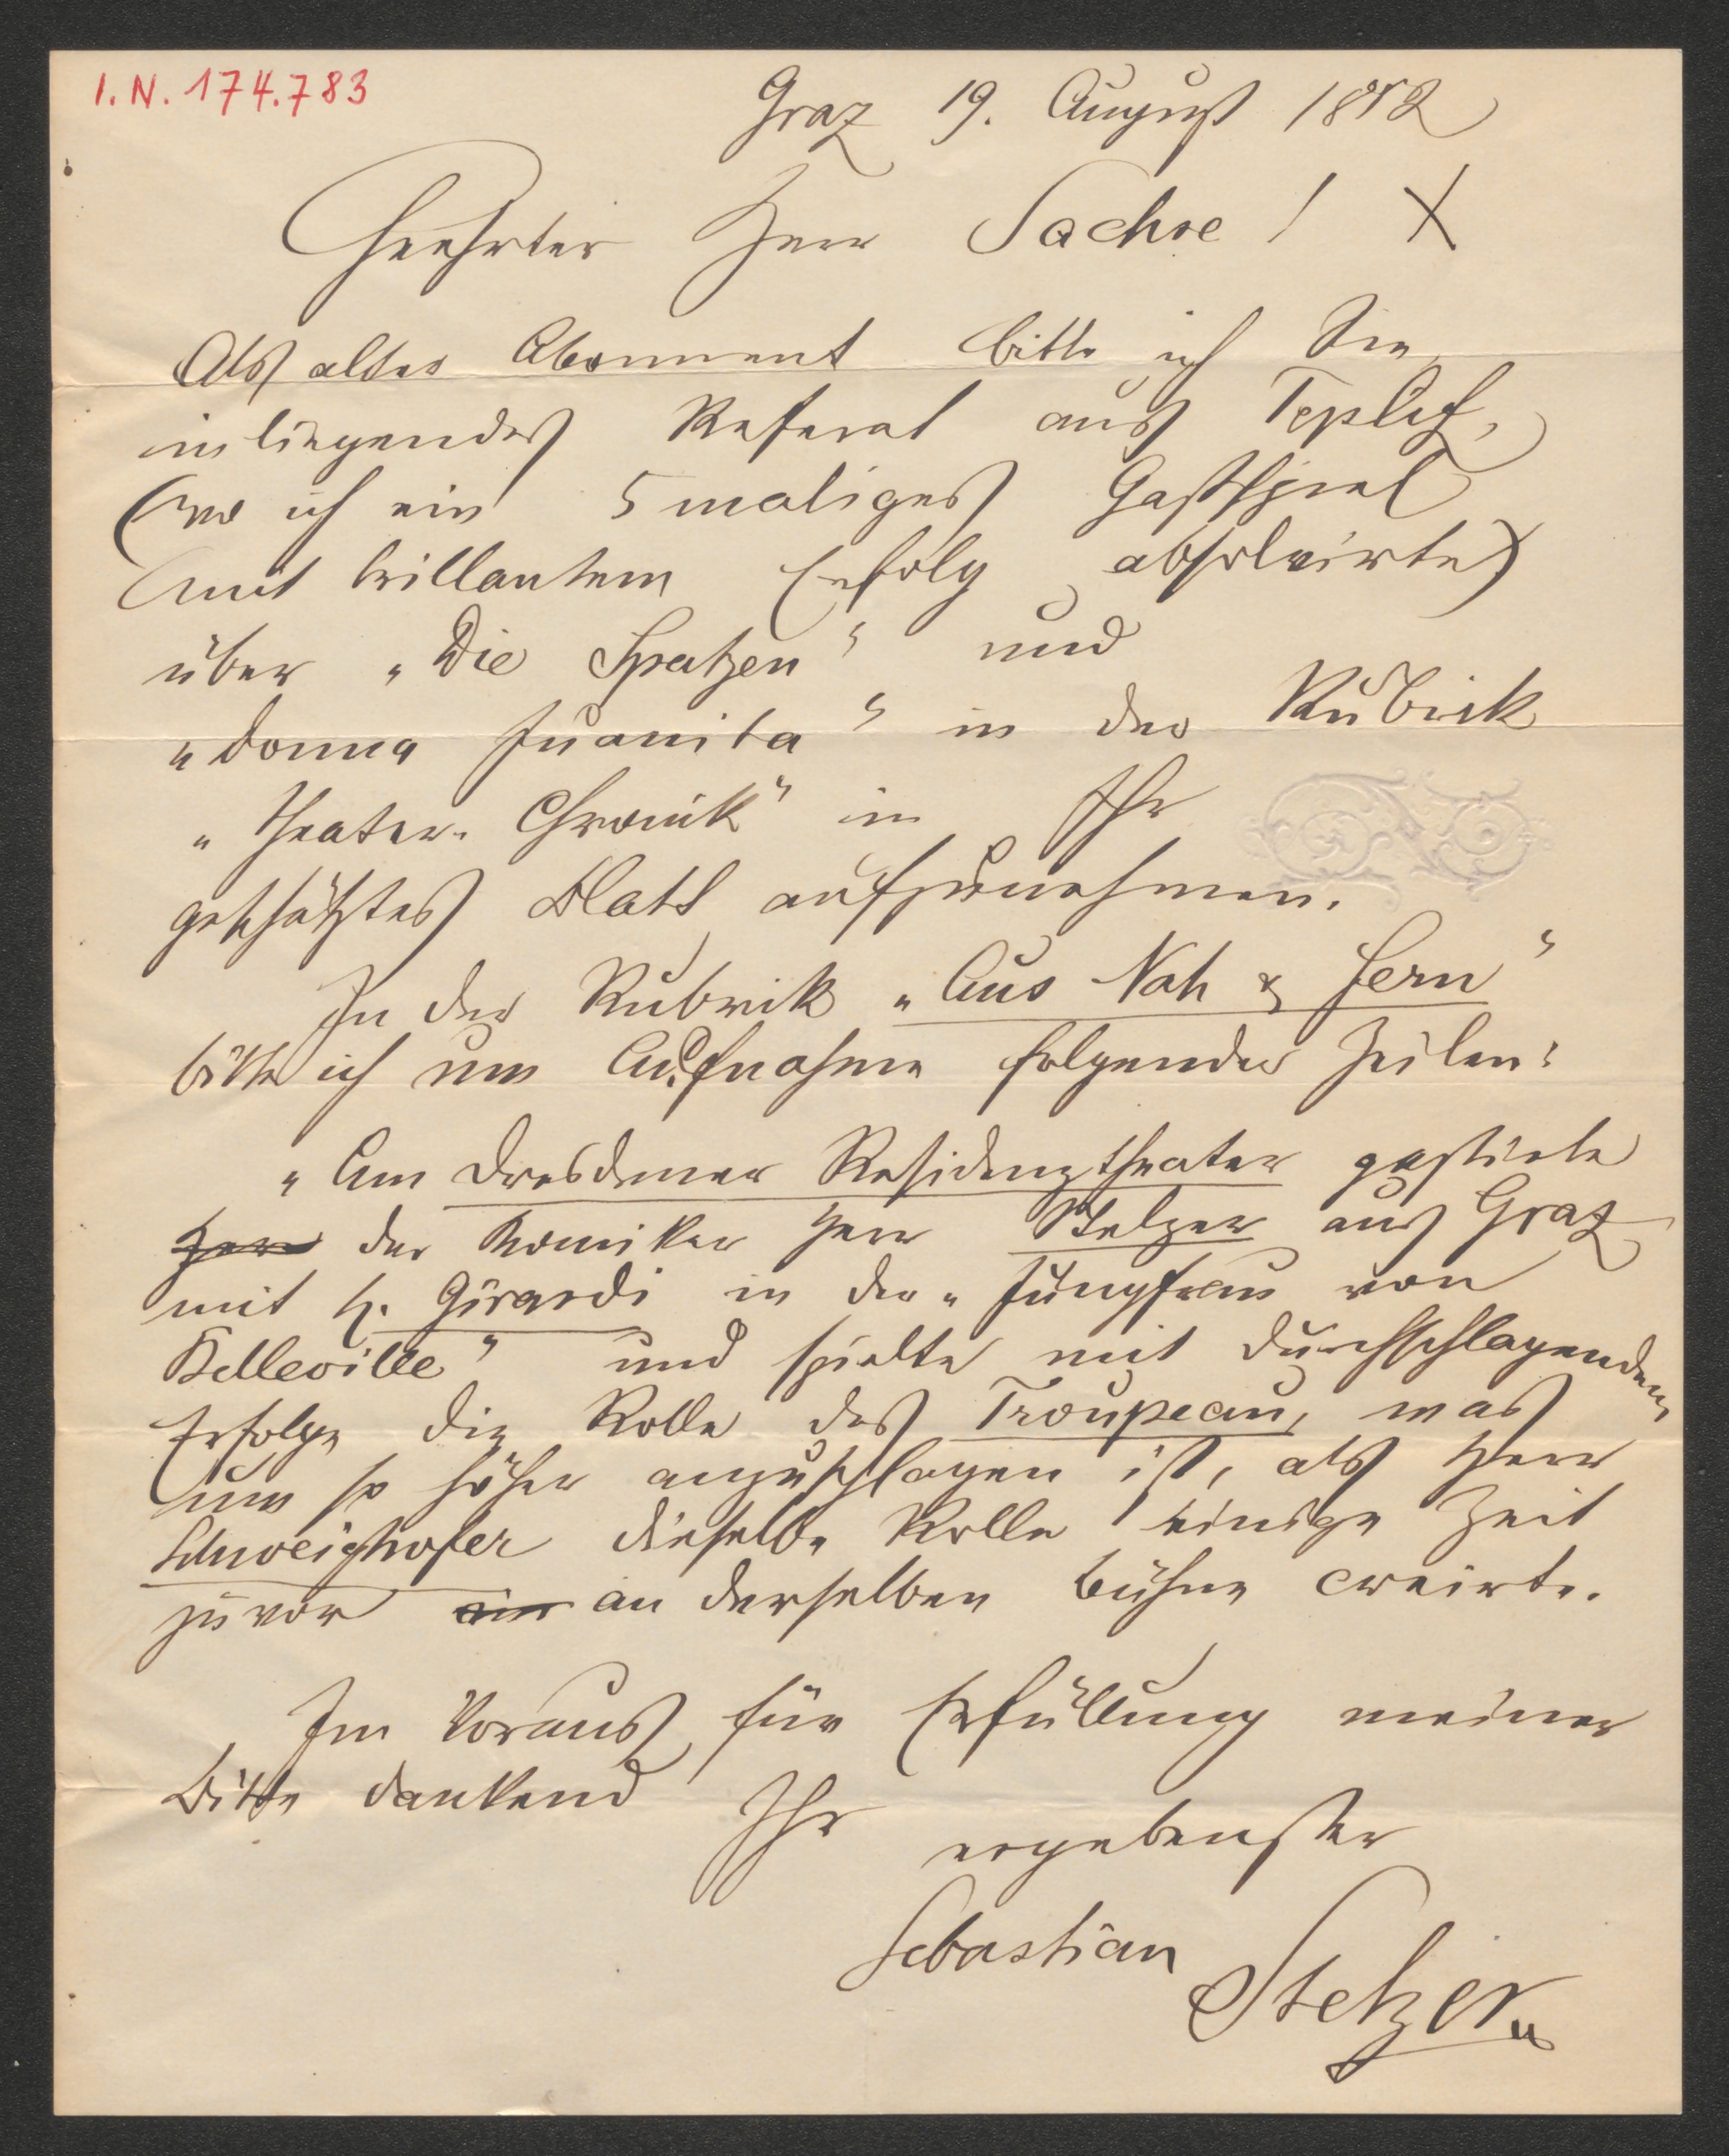 I. N. 174.783
Graz 19. August 1882
Geehrter Herr Sachse! X
Als alter Abonnent bitte ich Sie
inliegendes Referat aus Teplitz,
(wo ich ein 5 maliges Gastspiel
mit brillantem Erfolg absolvirte)
über „Die Spatzen“ und
„Donna Juanita“ in der Rubrik
„Theater-Chronik“ in Ihr
geschätztes Blatt aufzunehmen.
In der Rubrik „Aus Nah & Fern“
bitte ich um Aufnahme folgender Zeilen:
„Am Dresdener Residenztheater gastirte
Herr der Komiker Herr Stelzer aus Graz
mit H. Girardi in der „Jungfrau von
Belleville“ und spielte mit durchschlagendem
Erfolge die Rolle des Troupeau, was
um so höher anzuschlagen ist, als Herr
Schweighofer dieselbe Rolle einige Zeit
zuvor an derselben Bühne creirte.
Im Voraus für Erfüllung meiner
Bitte dankend Ihr
ergebenster
Sebastian
Stelzer